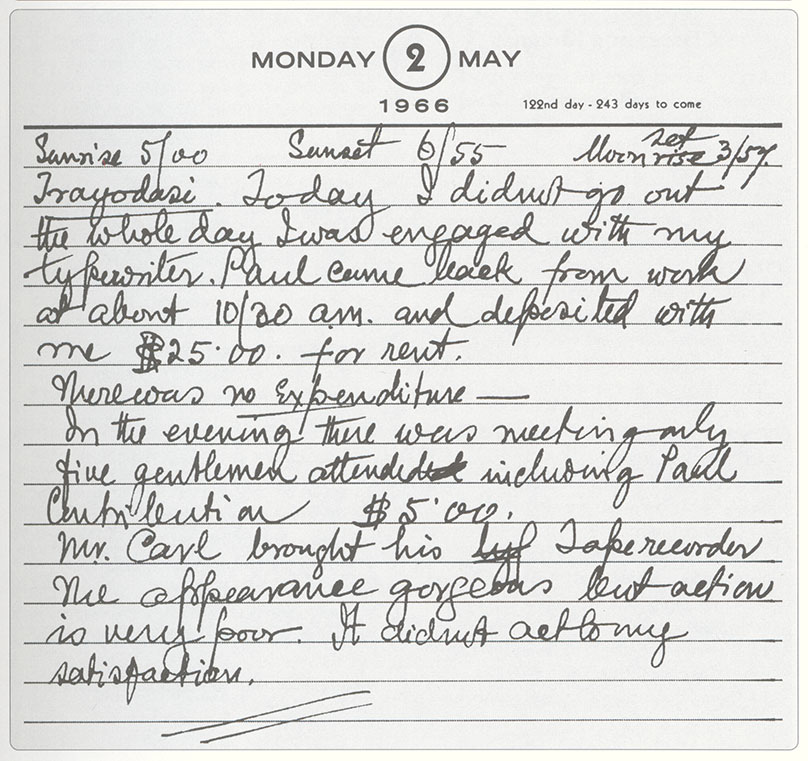 MONDAY 2 MAY
1966 122nd day - 243 days to come
Sunrise 5/00 Sunset 6/55 Moon rise set 3/57
Trayodasi. Today I didnot go out
the whole day I was engaged with my
typewriter. Paul came back from work
at about 10/30 a.m. and deposited with
me $25.00. for rent.
There was no Expenditure —
In the evening there was meeting only
five gentlemen attended including Paul
Contribution $5.00.
Mr. Carl brought his Taperecorder
The appearance gorgeous but action
is very poor. It didnot act to my
satisfaction.